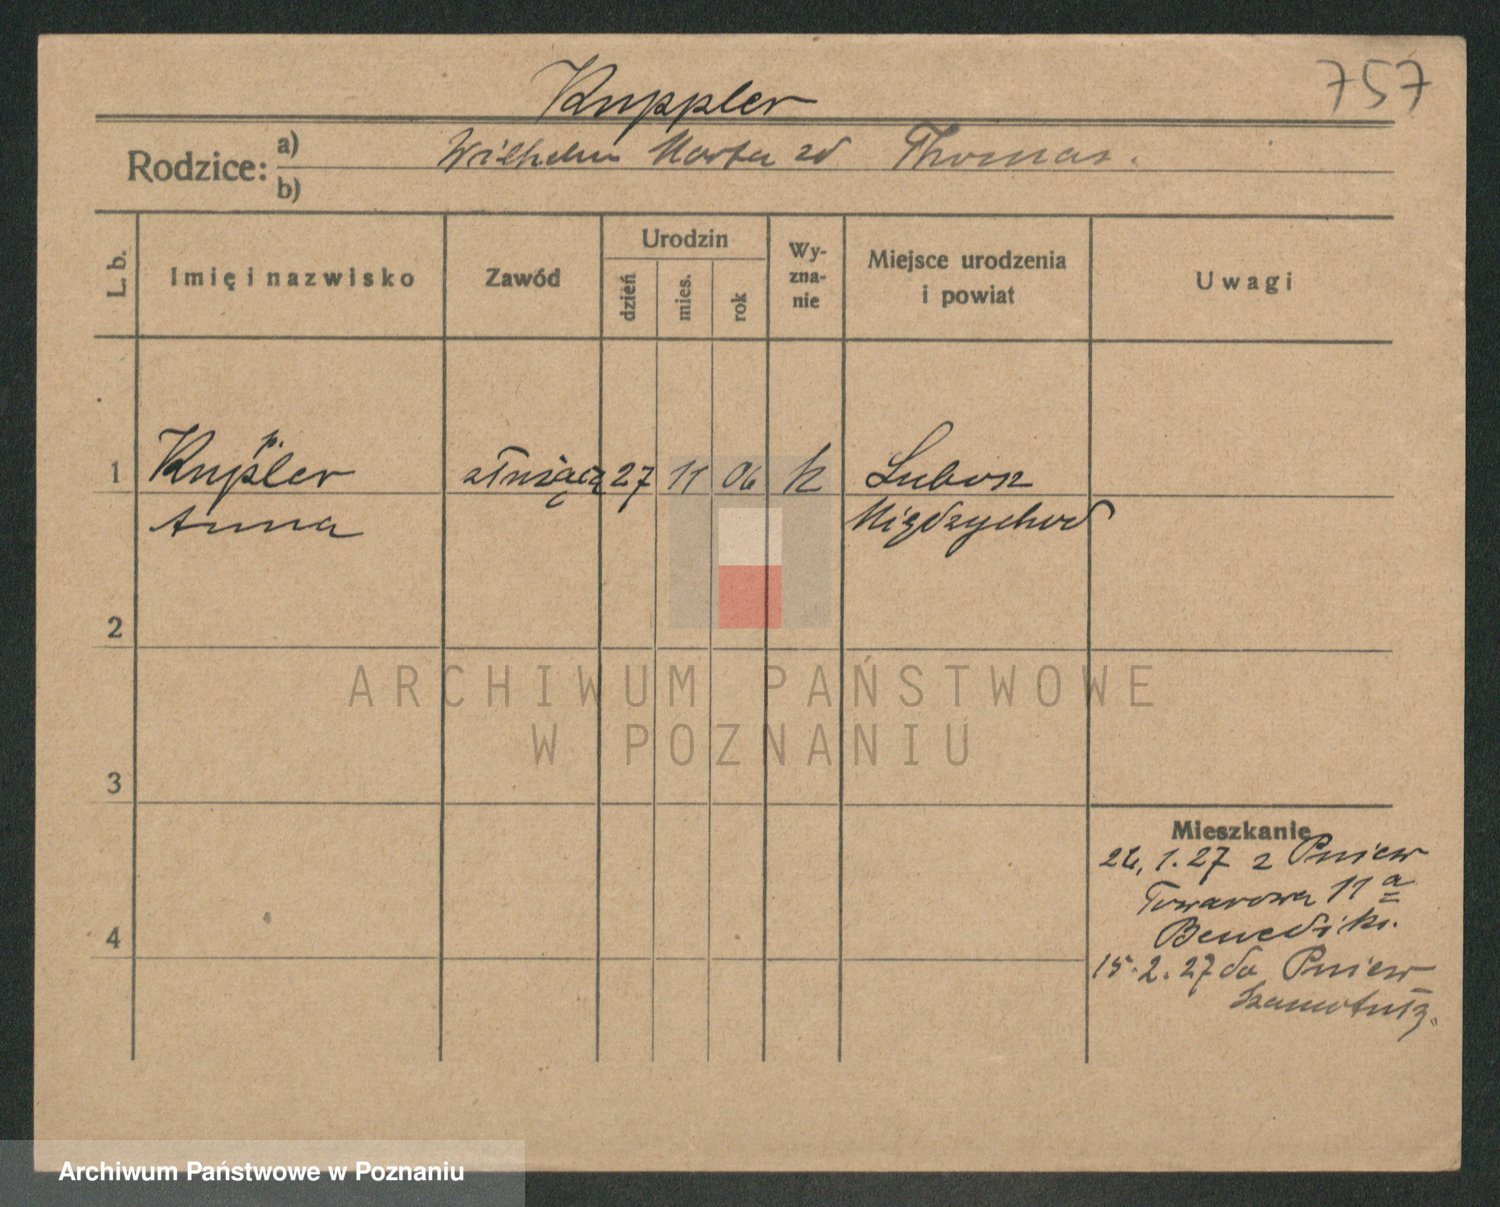 757
Kuppler
Rodzice: a) Wilhelm Marta zd Thomas.
b)
L. b. Imię i nazwisko Zawód Urodzin dzień mies. rok Wy-zna-nie Miejsce urodzenia i powiat Uwagi
p.
1 Kupler służąca 27 11 06 k Lubosz
Anna Międzychod
2
ARCHIWUM PAŃSTWOWE
W POZNANIU
3
Mieszkanie
1.27 z Pniew
Towarowa 11 a
4
15.2.27 do Pniew
Archiwum Państwowe w Poznaniu